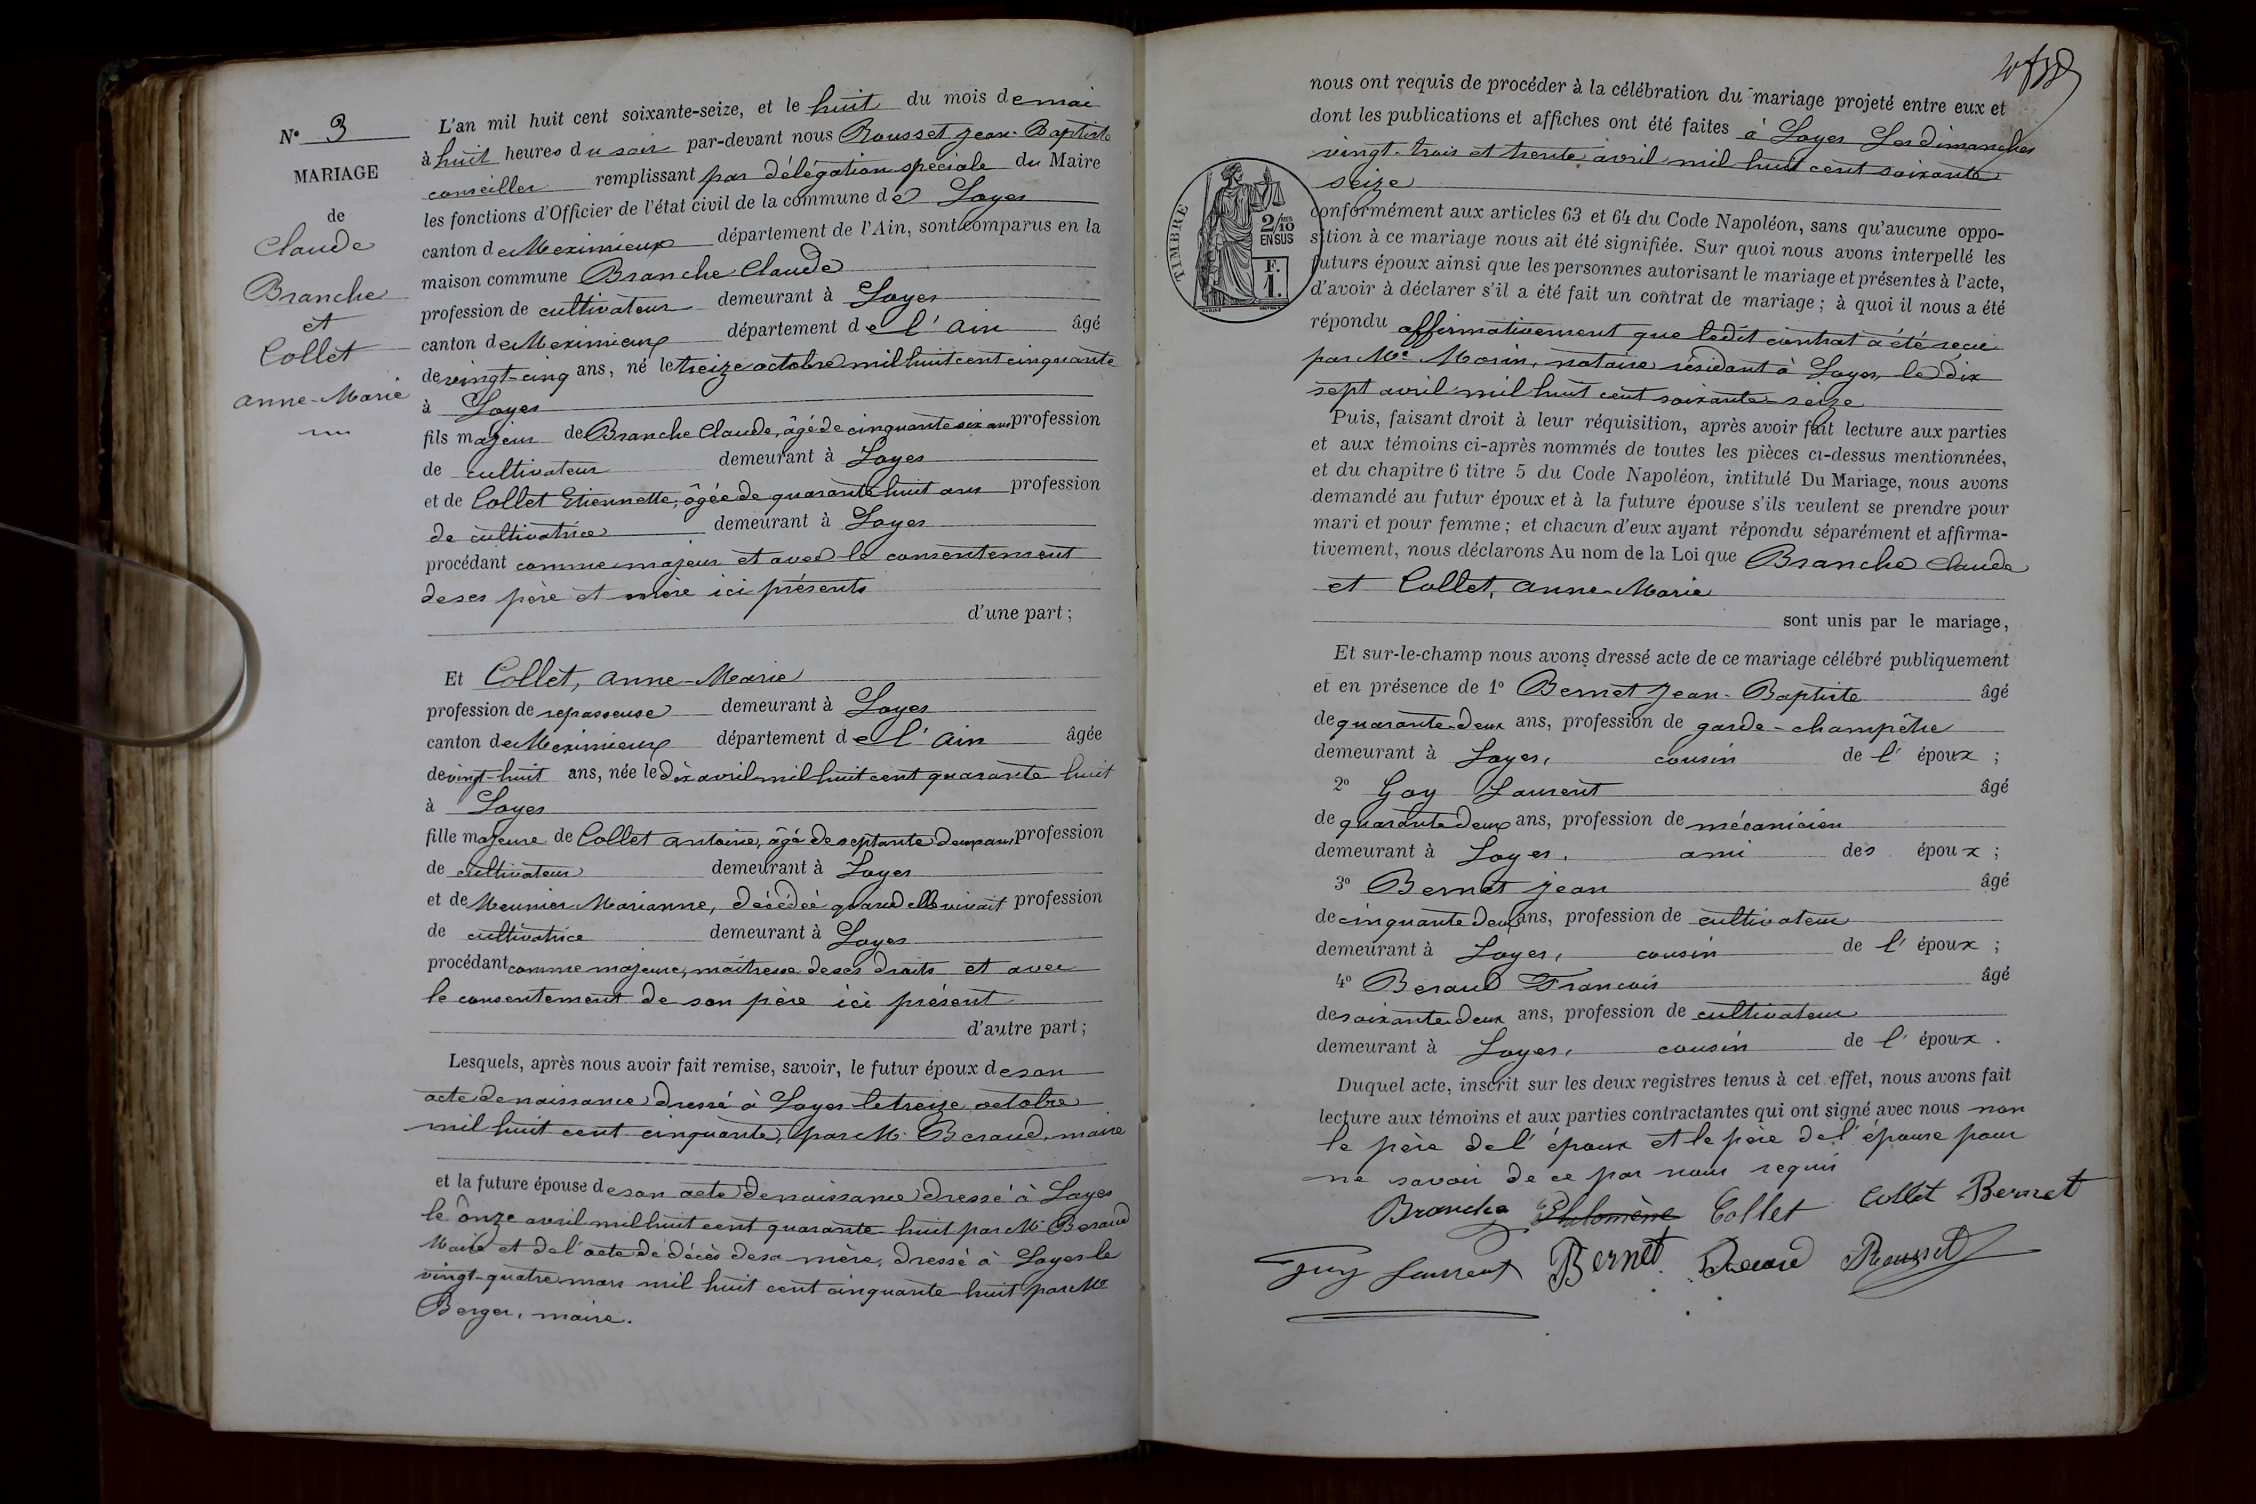 N° 3
MARIAGE
de
Claude
Branche
et
Collet
Anne-Marie
L'an mil huit cent soixante-seize, et le huit du mois de mai
à huit heures du soir par-devant nous Rousset Jean-Baptiste
conseiller remplissant par délégation spéciale du Maire
les fonctions d'Officier de l'état civil de la commune de Loyes
canton de Meximieux département de l'Ain, sont comparus en la
maison commune Branche Claude
profession de cultivateur demeurant à Loyes
canton de Meximieux département de l'Ain âgé
de vingt-cinq ans, né le treize octobre mil huit cent cinquante
à Loyes
fils majeur de Branche Claude, âgé de cinquante six ans profession
de cultivateur demeurant à Loyes
et de Collet Etiennette, âgée de quarante huit ans profession
de cultivatrice demeurant à Loyes
procédant comme majeur et avec le consentement
de ses père et mère ici présents
d'une part ;
Et Collet, Anne-Marie
profession de repasseuse demeurant à Loyes
canton de Meximieux département de l'Ain âgée
de vingt-huit ans, née le dix avril mil huit cent quarante huit
à Loyes
fille majeure de Collet Antoine, âgé de septante deux ans profession
de cultivateur demeurant à Loyes
et de Meunier Marianne, décédée quand elle vivait profession
de cultivatrice demeurant à Loyes
procédant comme majeure, maîtresse de ses droits et avec
le consentement de son père ici présent
d'autre part ;
Lesquels, après nous avoir fait remise, savoir, le futur époux de son
acte de naissance dressé à Loyes le treize octobre
mil huit cent cinquante, par Mr Beraud, maire
et la future épouse de son acte de naissance dressé à Loyes
le onze avril mil huit cent quarante huit par Mr Beraud
Maire et de l'acte de décès de sa mère, dressé à Loyes le
vingt-quatre mars mil huit cent cinquante huit par Mr
Berger, maire.
nous ont requis de procéder à la célébration du mariage projeté entre eux et
dont les publications et affiches ont été faites à Loyes Les dimanches
vingt-trois et trente avril mil huit cent soixante
seize
TIMBRE
2/10 EN SUS
F. 1.
conformément aux articles 63 et 64 du Code Napoléon, sans qu'aucune oppo-
sition à ce mariage nous ait été signifiée. Sur quoi nous avons interpellé les
futurs époux ainsi que les personnes autorisant le mariage et présentes à l'acte,
d'avoir à déclarer s'il a été fait un contrat de mariage ; à quoi il nous a été
répondu affirmativement que ledit contrat a été reçu
par Me Morin, notaire résidant à Loyes, le dix
sept avril mil huit cent soixante-seize
Puis, faisant droit à leur réquisition, après avoir fait lecture aux parties
et aux témoins ci-après nommés de toutes les pièces ci-dessus mentionnées,
et du chapitre 6 titre 5 du Code Napoléon, intitulé Du Mariage, nous avons
demandé au futur époux et à la future épouse s'ils veulent se prendre pour
mari et pour femme ; et chacun d'eux ayant répondu séparément et affirma-
tivement, nous déclarons Au nom de la Loi que Branche Claude
et Collet, Anne-Marie
sont unis par le mariage,
Et sur-le-champ nous avons dressé acte de ce mariage célébré publiquement
et en présence de 1° Bernet Jean-Baptiste âgé
de quarante-deux ans, profession de garde-champêtre
demeurant à Loyes, cousin de l'époux ;
2° Goy Laurent âgé
de quarante deux ans, profession de mécanicien
demeurant à Loyes, ami des époux ;
3° Bernet Jean âgé
de cinquante deux ans, profession de cultivateur
demeurant à Loyes, cousin de l'époux ;
4° Beraud Francois âgé
de soixante-deux ans, profession de cultivateur
demeurant à Loyes, cousin de l'époux.
Duquel acte, inscrit sur les deux registres tenus à cet effet, nous avons fait
lecture aux témoins et aux parties contractantes qui ont signé avec nous non
le père de l'époux et le père de l'épouse pour
ne savoir de ce par nous requis
Branche Philomène Collet Collet Bernet
Goy Laurent Bernet Beraud Rousset